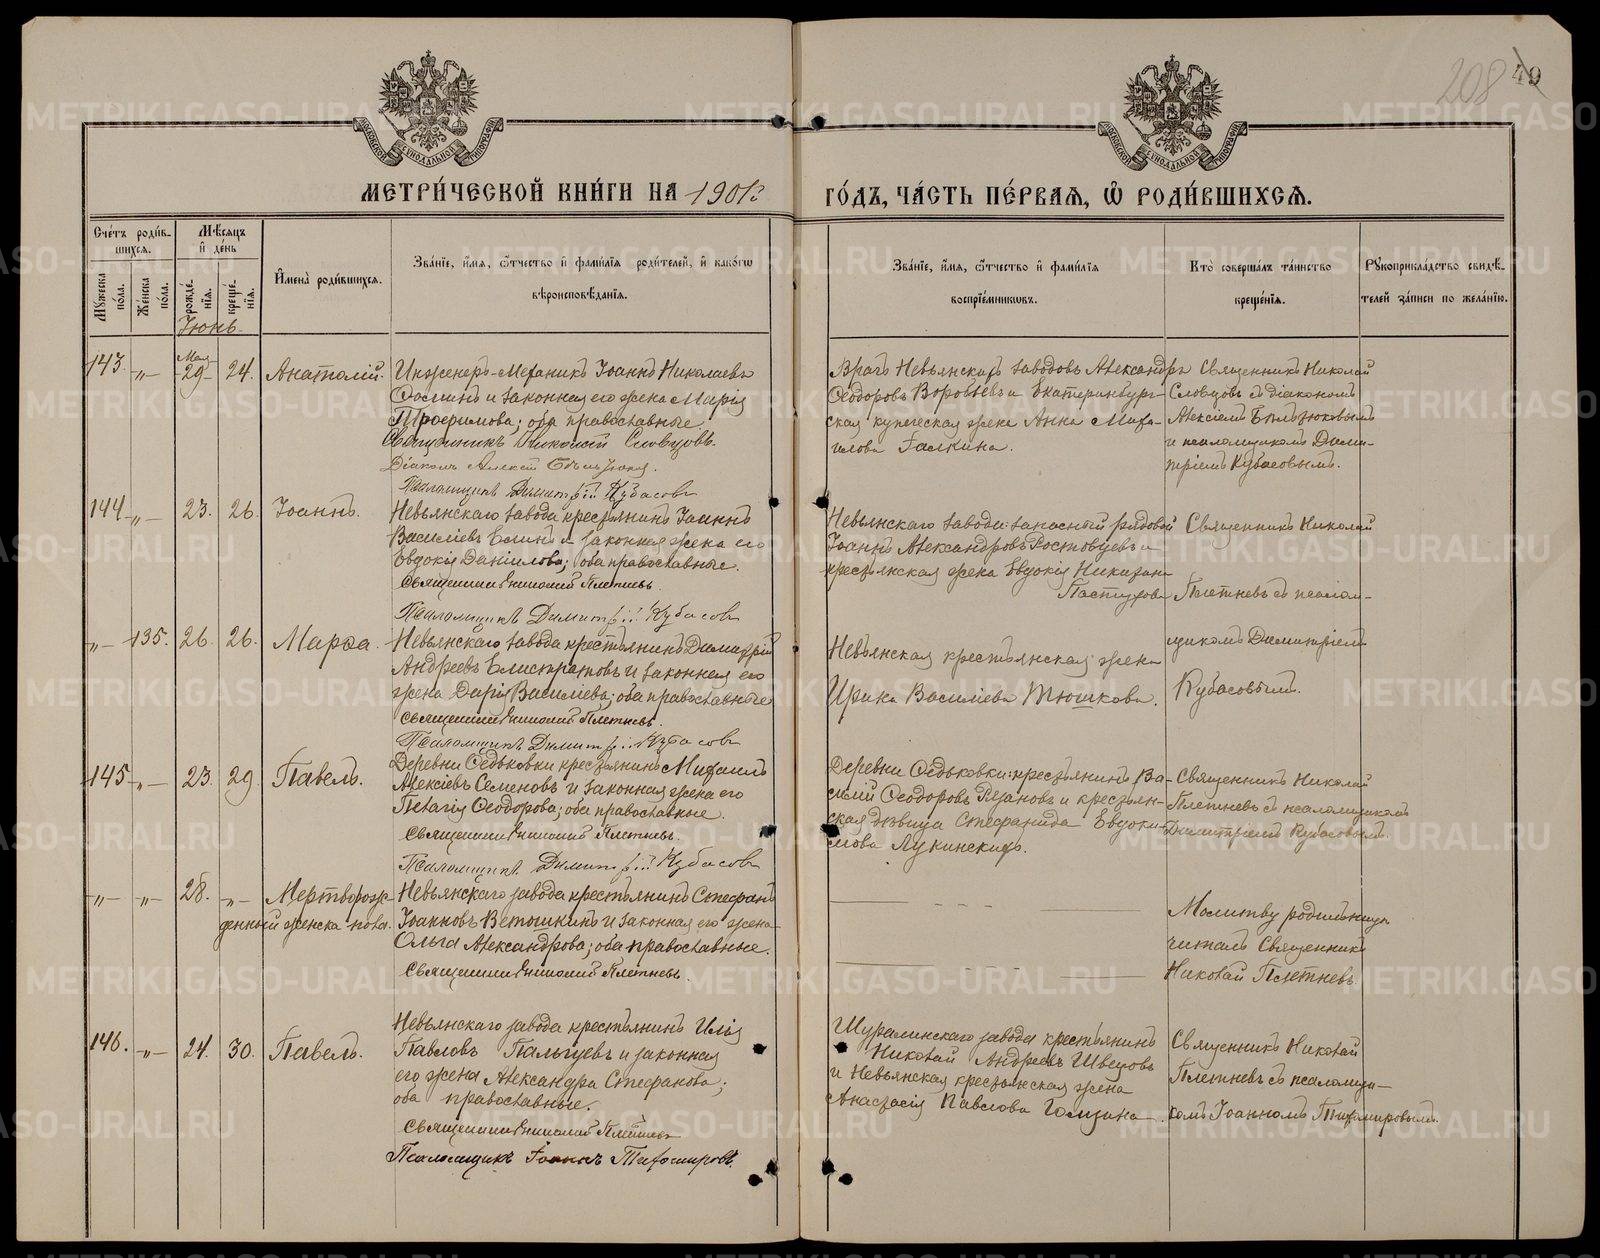 208 49
МЕТРИ́ЧЕСКОЙ КНИ́ГИ НА 1901й
ГО́ДЪ, ЧА́СТЬ ПЕ́РВАЯ, Ѡ РОДИ́ВШИХСЯ.
Сче́тъ роди́в-
шихся.
Мѣ́сяцъ
и де́нь
Му́жеска по́ла.
Же́нска по́ла.
рожде́нія.
креще́нія.
Имена̀ роди́вшихся.
Зва́ніе, и́мя, о́тчество и фами́лія роди́телей, и како́гѡ
вѣроисповѣ́данія.
Зва́ніе, и́мя, о́тчество и фами́лія
воспріе́мниковъ.
Кто̀ соверша́лъ та́инство
креще́нія.
Рукоприкла́дство свидѣ́-
телей за́писи по жела́нію.
Іюнь.
143. -„- Мая 29 24. Анатолій.
Инженеръ-Механикъ Іоаннъ Николаевъ
и законная его жена Марія
Трофимова; оба православные.
Священникъ Николай Словцовъ.
Діаконъ Алексій
Псаломщикъ Димитрій Кубасовъ
Врачъ Невьянскихъ заводовъ Александръ
Ѳеодоровъ Воробьевъ и Екатеринбург-
ская купеческая жена Анна Миха-
илова Галкина.
Священникъ Николай
Словцовъ съ діакономъ
Алексіемъ
и псаломщикомъ Дими-
тріемъ Кубасовымъ.
144 -„- 23. 26. Іоаннъ.
Невьянскаго завода крестьянинъ Іоаннъ
Василіевъ и законная жена его
Евдокія Даніилова; оба православные.
Священникъ Николай Плетневъ.
Псаломщикъ Димитрій Кубасовъ
Невьянскаго завода запасный рядовой
Іоаннъ Александровъ Ростовцевъ и
крестьянская жена Евдокія
Пастухова
Священникъ Николай
Плетневъ съ псалом-
щикомъ Димитріемъ
Кубасовымъ.
-„- 135. 26. 26. Марѳа.
Невьянскаго завода крестьянинъ Димитрій
Андреевъ Елистратовъ и законная его
жена Дарія Василіева; оба православные
Священникъ Николай Плетневъ.
Псаломщикъ Димитрій Кубасовъ
Невьянская крестьянская жена
Ирина Василіева Тюшкова.
145 -„- 23. 29. Павелъ.
Деревни Ѳедьковки крестьянинъ Михаилъ
Алексіевъ Семеновъ и законная жена его
Пелагія Ѳеодорова; оба православные.
Священникъ Николай Плетневъ.
Псаломщикъ Димитрій Кубасовъ
Деревни Ѳедьковки: крестьянинъ Ва-
силій Ѳеодоровъ Рязановъ и крестьян-
ская дѣвица Стефанида Евдоки-
мова Лукинскихъ.
Священникъ Николай
Плетневъ съ псаломщикомъ
Димитріемъ Кубасовымъ.
-„- -„- 28. -„- Мертворож-
денный женска пола.
Невьянскаго завода крестьянинъ Стефанъ
Іоанновъ Ветошкинъ и законная его жена
Ольга Александрова; оба православные.
Священникъ Николай Плетневъ.
Молитву родильницѣ
читалъ Священникъ
Николай Плетневъ.
146. -„- 24. 30. Павелъ.
Невьянскаго завода крестьянинъ Илія
Павловъ Пальцевъ и законная
его жена Александра Стефанова;
оба православные.
Священникъ Николай Плетневъ
Псаломщикъ Іоаннъ Тихомировъ.
Шуралинскаго завода крестьянинъ
Николай Андреевъ Швецовъ
и Невьянская крестьянская жена
Анастасія Павлова
Священникъ Николай
Плетневъ съ псаломщи-
комъ Іоанномъ Тихомировымъ.
METRIKI.GASO-URAL.RU